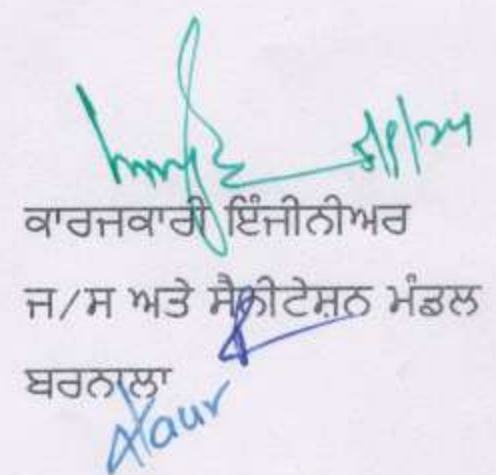 ਕਾਰਜਕਾਰੀ ਇੰਜੀਨੀਅਰ
ਜ/ਸ ਅਤੇ ਸੈਨੀਟੇਸ਼ਨ ਮੰਡਲ
ਬਰਨਾਲਾ
Kaur